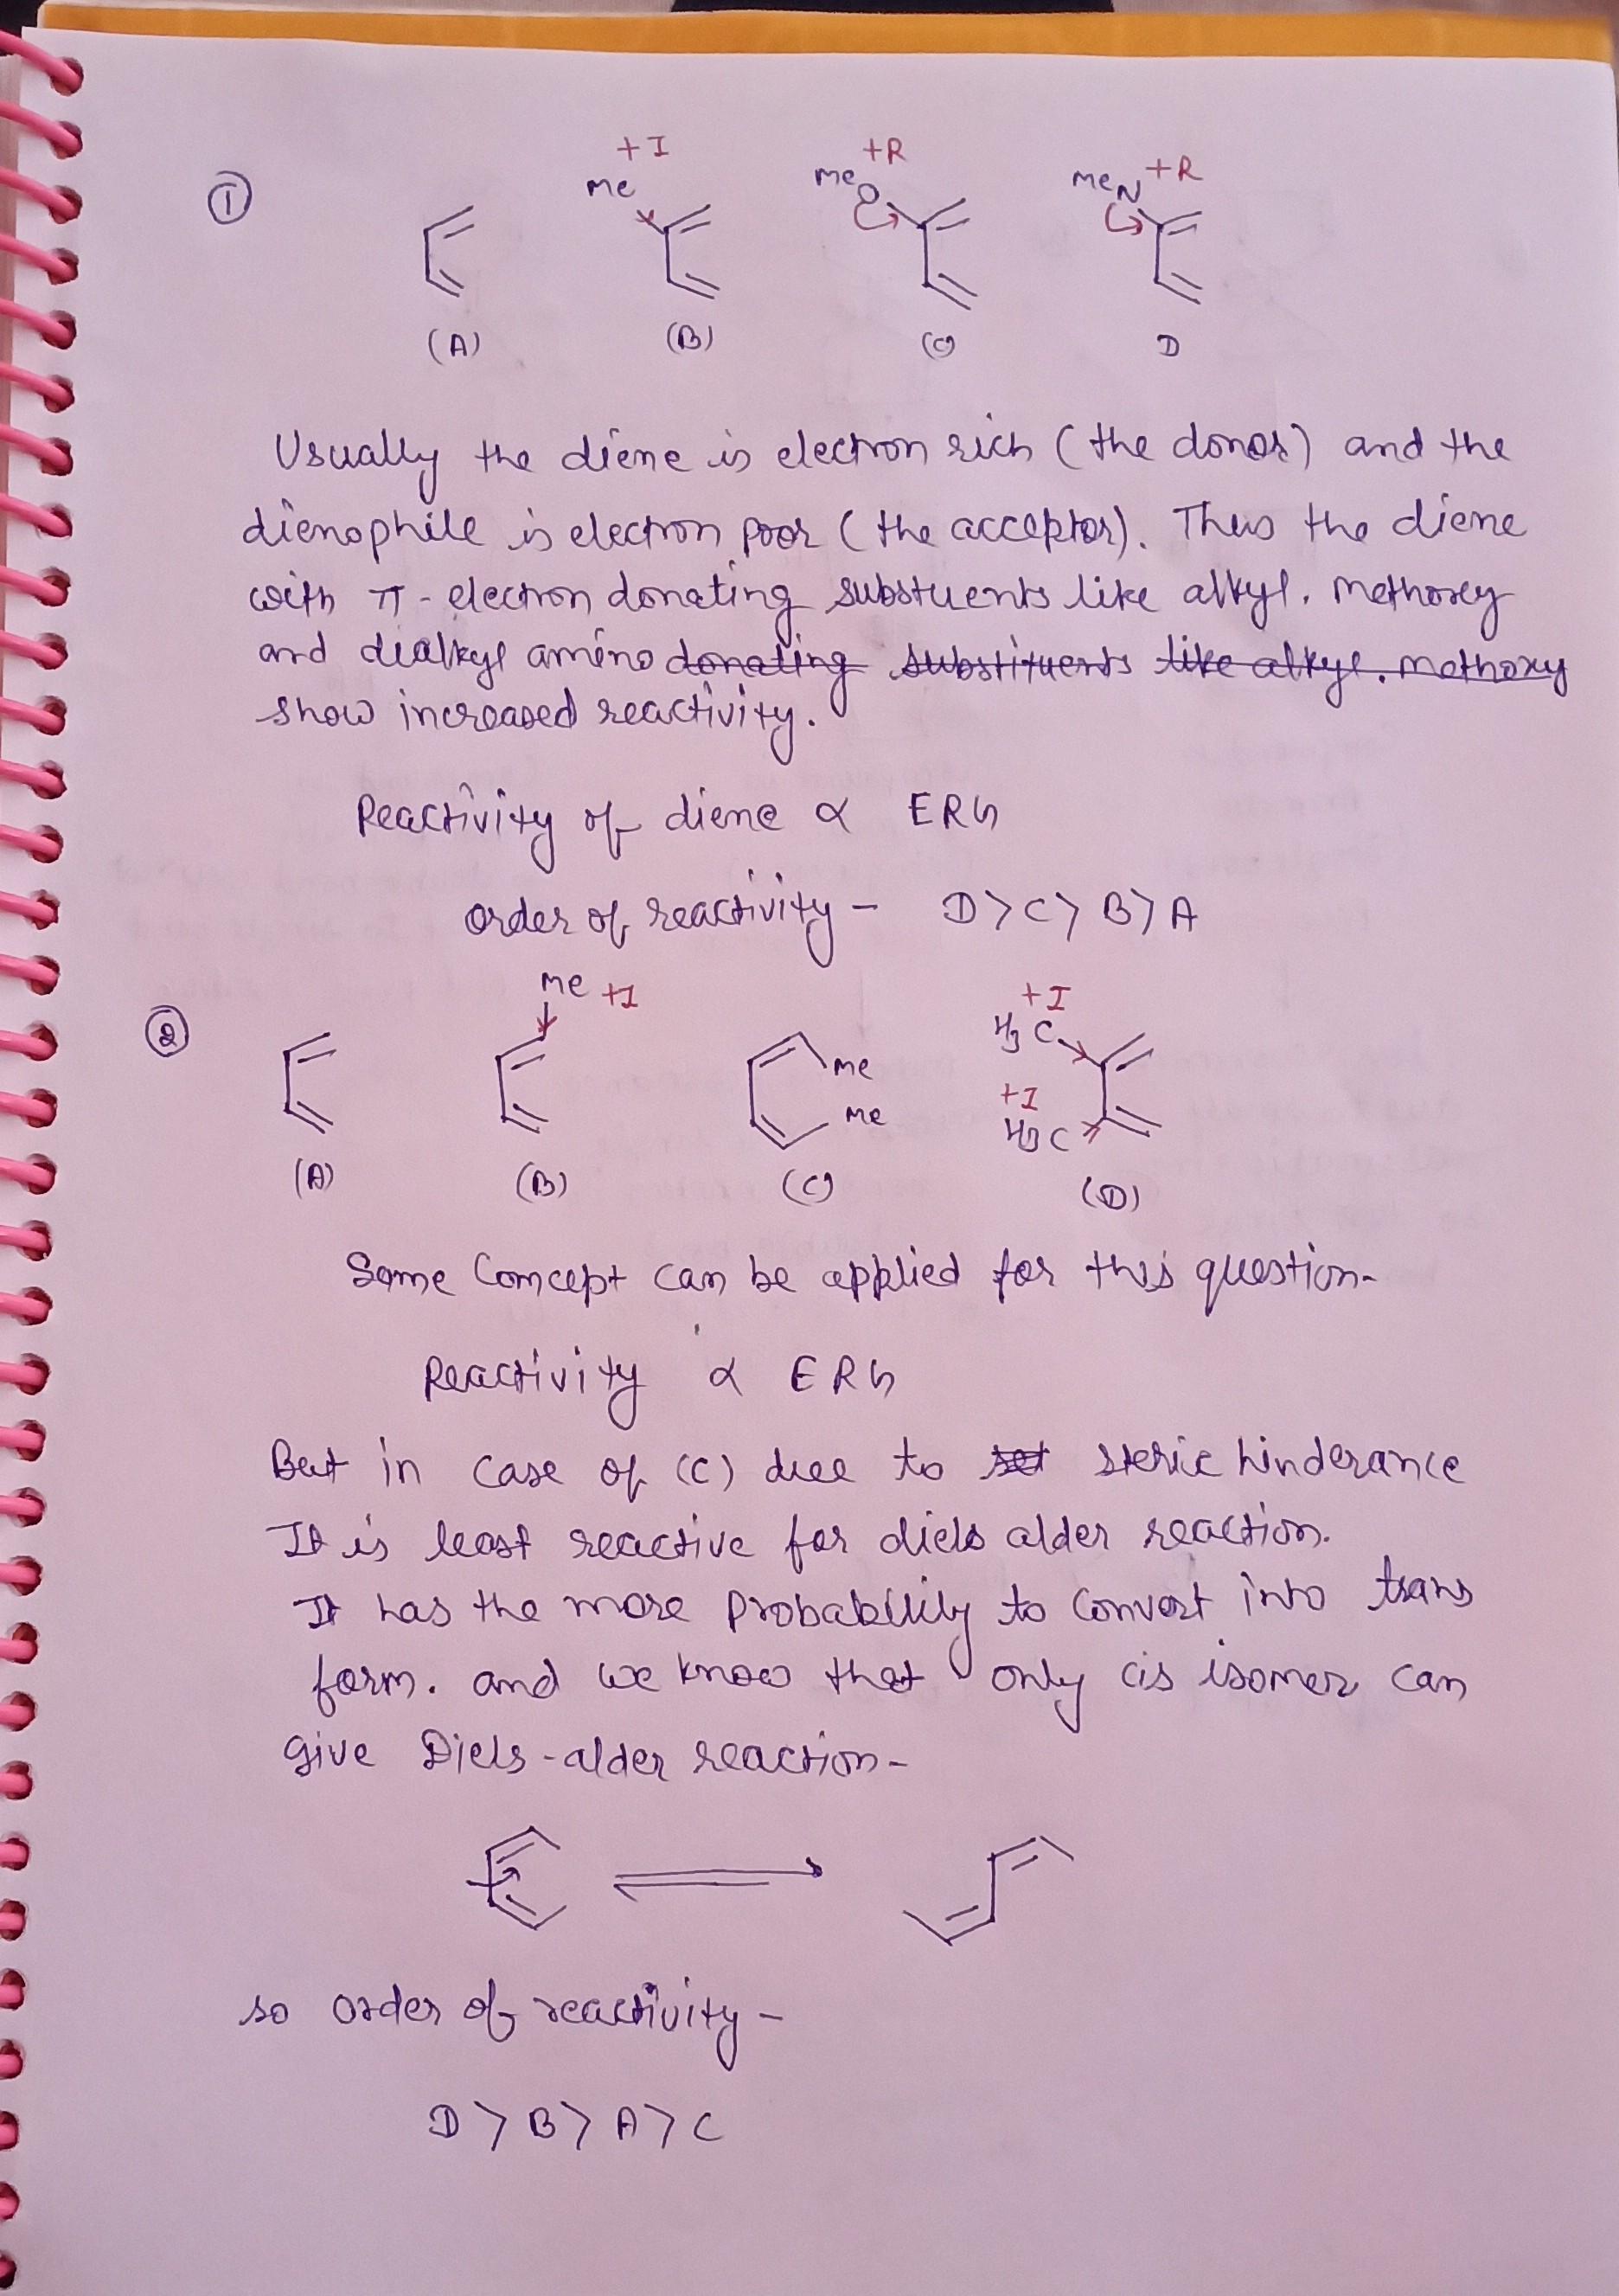 ①
+I
+R
+R
Me
MeO
MeN
(A) (B) (C) D
Usually the diene is electron rich (the donor) and the
dienophile is electron poor (the acceptor). Thus the diene
with π-electron donating substuents like alkyl, methoxy
and dialkyl amino donating substituents like alkyl, methoxy
show increased reactivity.
Reactivity of diene α ERG
order of reactivity - D > C > B > A
②
Me +I
Me
Me
+I
H3C
+I
H3C
(A) (B) (C) (D)
Same Concept can be applied for this question-
Reactivity α ERG
But in case of (C) due to steric hinderance
It is least reactive for diels alder reaction.
It has the more Probability to Convert into trans
form. and we know that only cis isomer can
give Diels-alder reaction-
so order of reactivity -
D > B > A > C